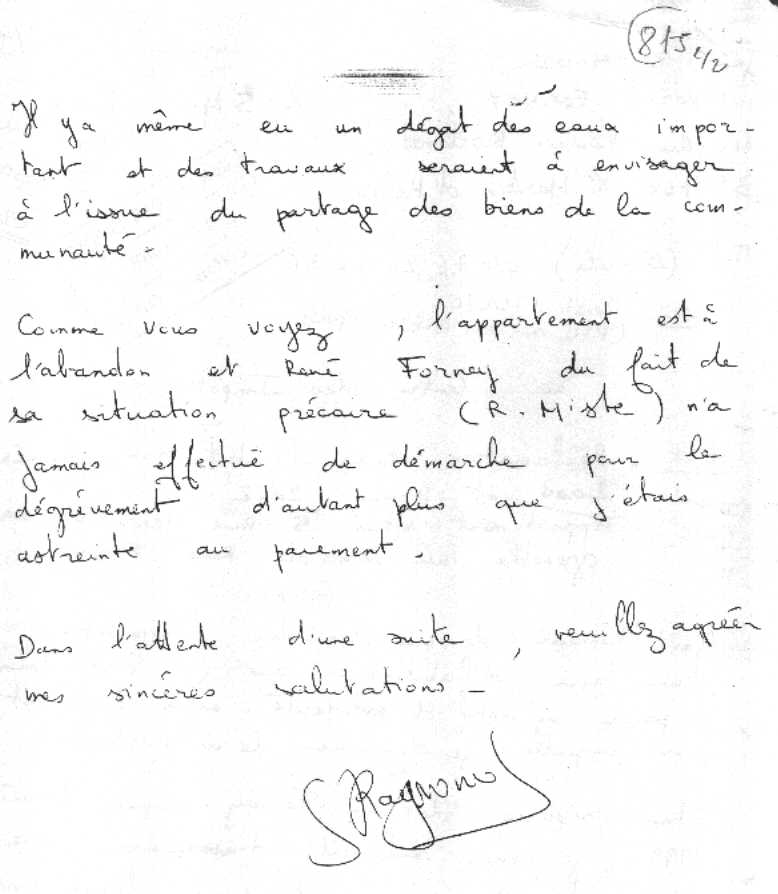 815 4/2
Il y a même eu un dégat des eaux impor-
tant et des travaux seraient à envisager
à l'issue du partage des biens de la com-
munauté -
Comme vous voyez, l'appartement est à
l'abandon et René Forney du fait de
sa situation précaire (R. Miste) n'a
jamais effectué de démarche pour le
dégrèvement d'autant plus que j'étais
astreinte au paiement.
Dans l'attente d'une suite, veuillez agréer
mes sincères salutations -